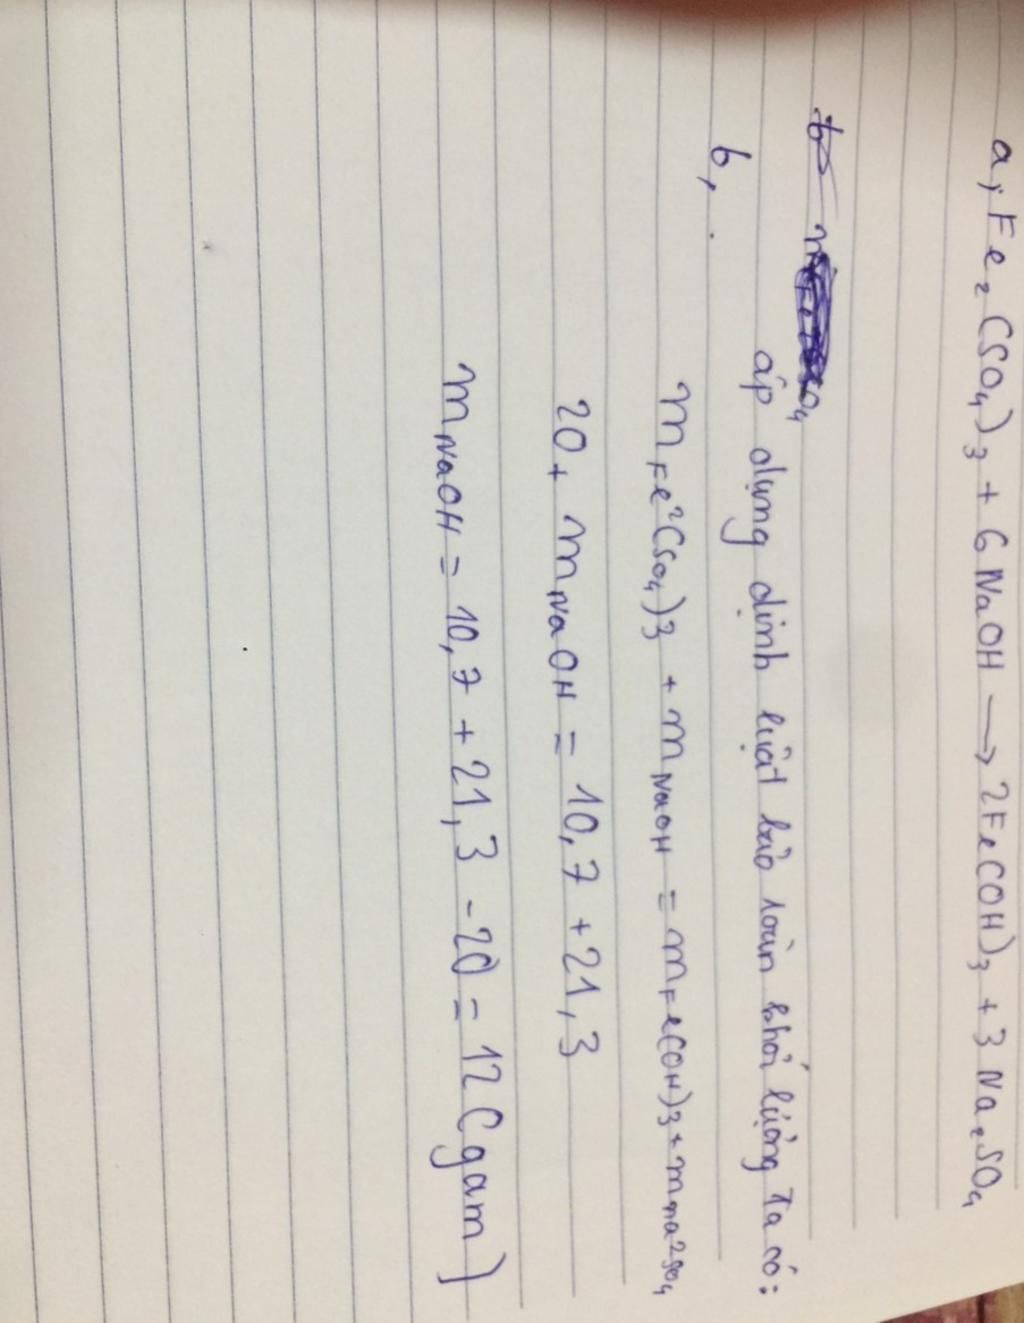 a, Fe₂(SO₄)₃ + 6 NaOH → 2Fe(OH)₃ + 3 Na₂SO₄
b,
áp dụng định luật bảo toàn khối lượng ta có:
m Fe²(SO₄)3 + m NaOH = m Fe(OH)3 + m na²so₄
20 + m NaOH = 10,7 + 21,3
m NaOH = 10,7 + 21,3 - 20 = 12 (gam)